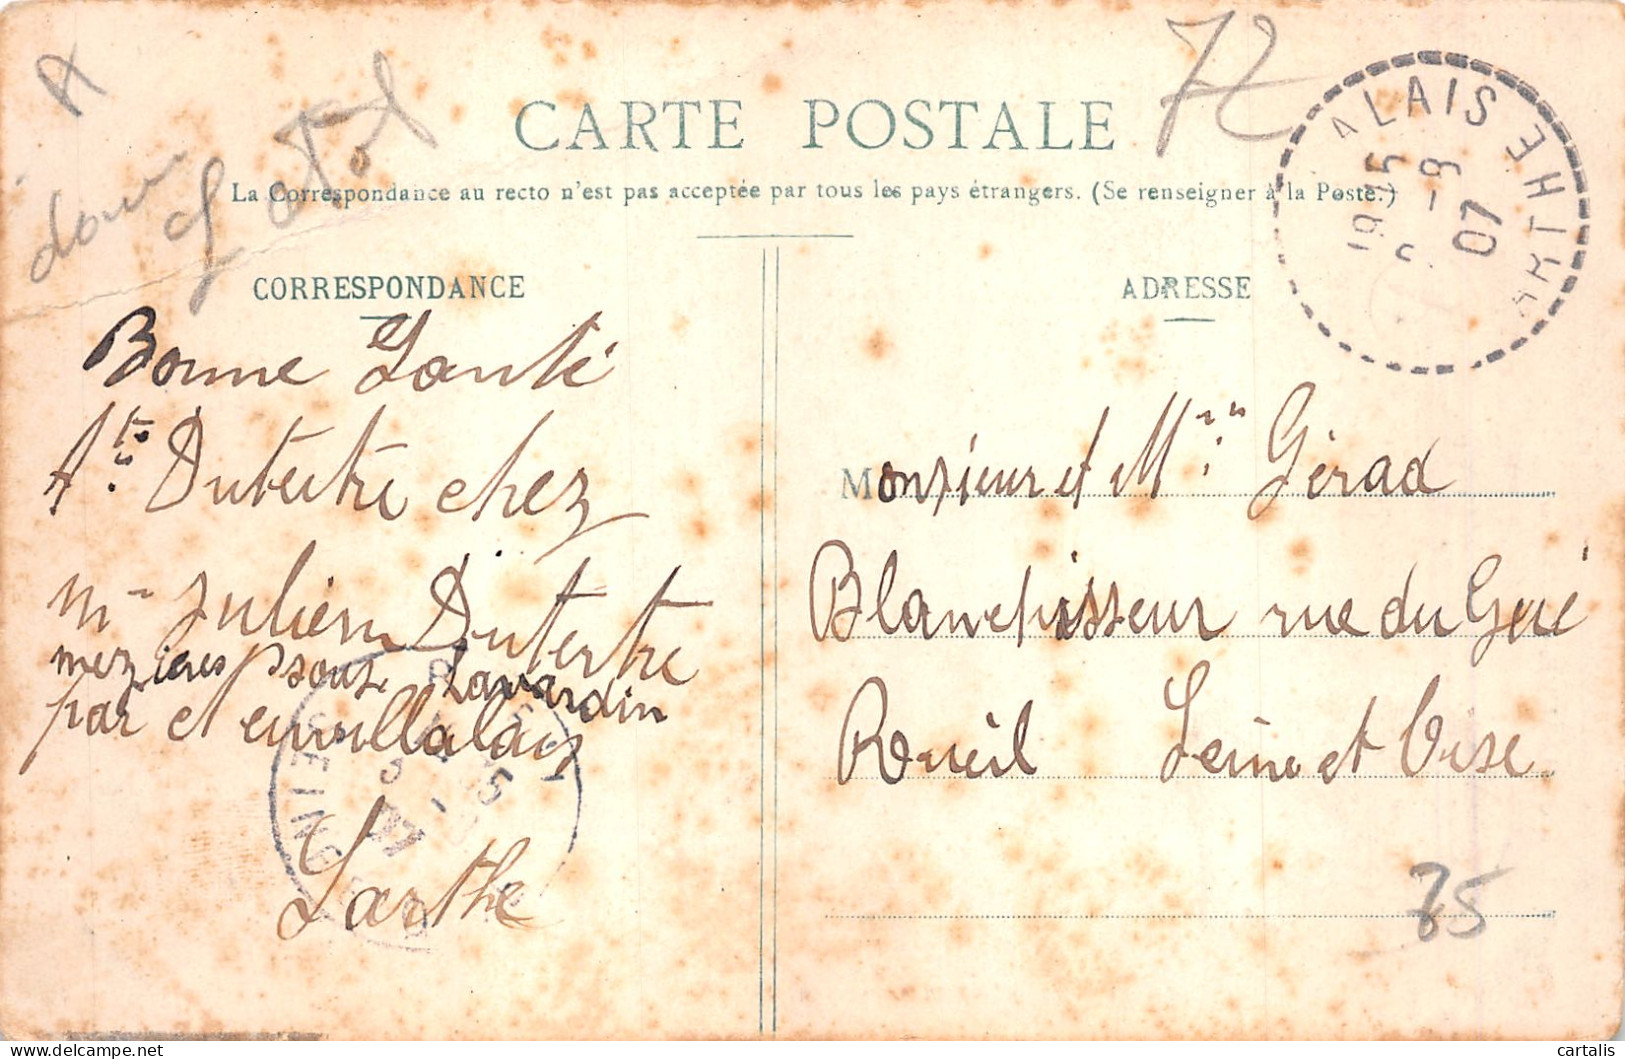 A
72
CARTE POSTALE
La Correspondance au recto n'est pas acceptée par tous les pays étrangers. (Se renseigner à la Poste.)
CORRESPONDANCE
Bonne Santé
Dutertre chez
Mr Julien Dutertre
mezieres sous Lavardin
par et
Sarthe
ADRESSE
ALAIS
15 - 9
07
Monsieur et Mme Gérad
Blanchisseur rue du Gué
Rueil Seine et Oise
75
cartalis